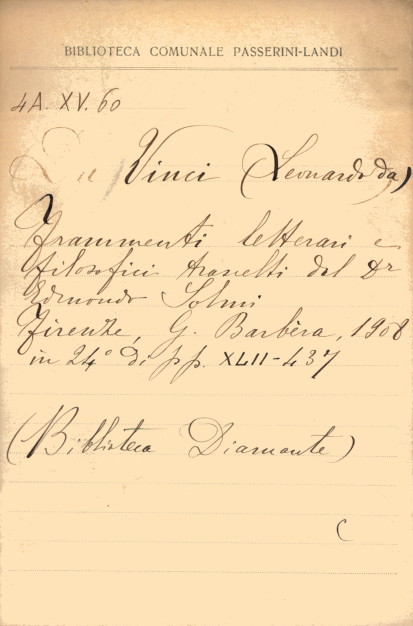 BIBLIOTECA COMUNALE PASSERINI-LANDI
4A. XV. 60
Vinci (Leonardo da)
Frammenti letterari e
filosofici trascelti dal Dr
Edmondo Solmi
Firenze, G. Barbèra, 1908
in 24° di pp. XLII-437
(Biblioteca Diamante)